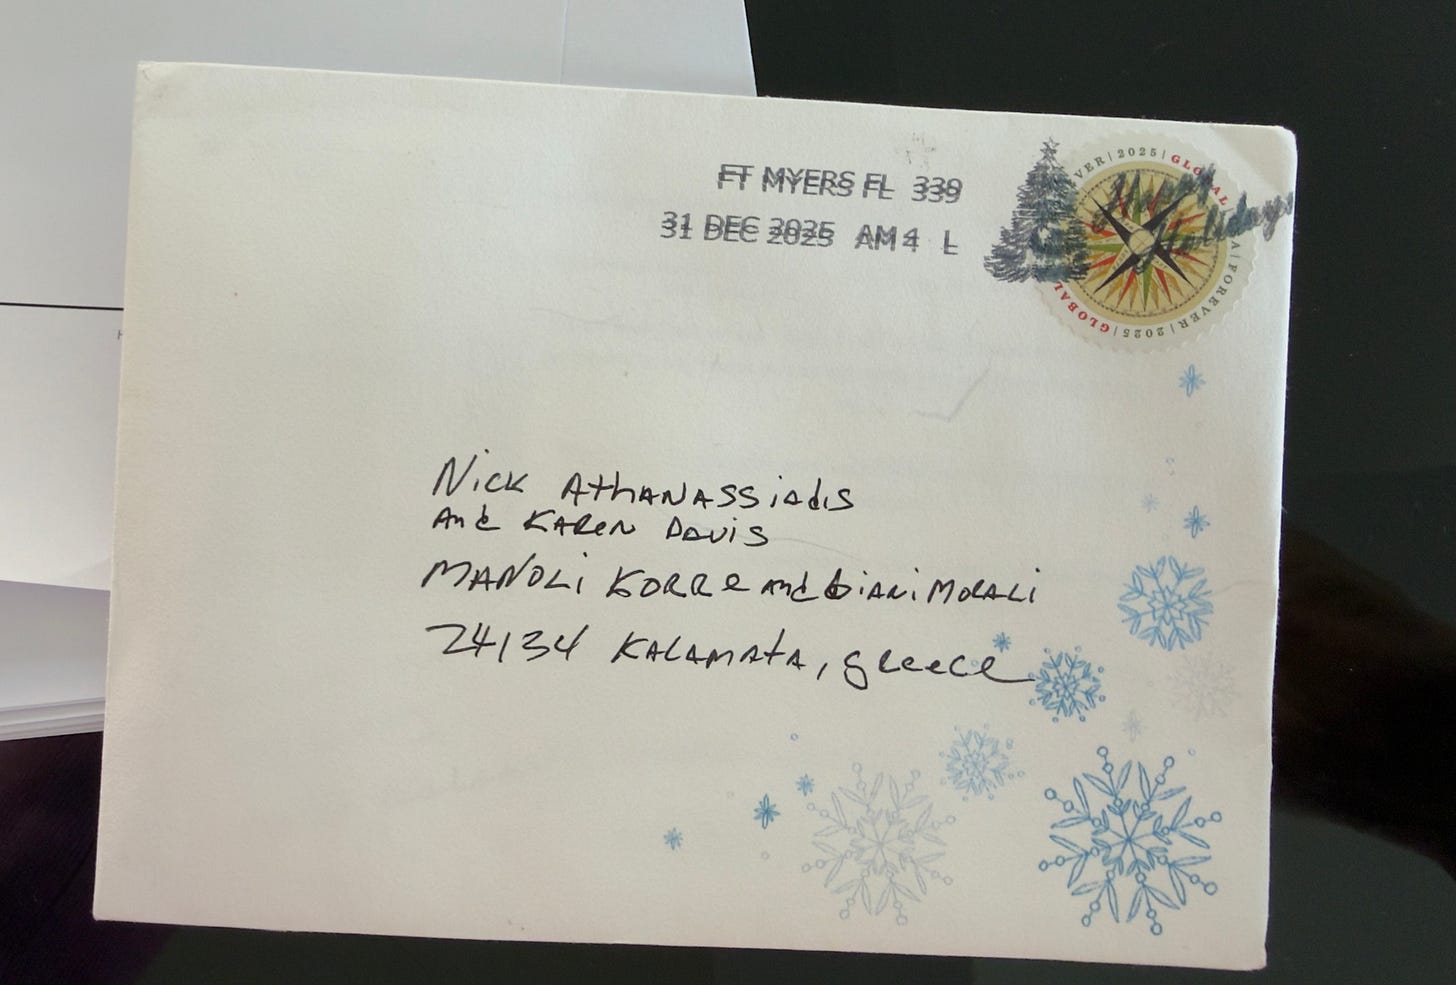 FT MYERS FL 339
31 DEC 2025 AM 4 L
Happy Holidays
FOREVER | 2025 | GLOBAL
USA | FOREVER | 2025 | GLOBAL
Nick Athanassiadis
and Karen Davis
Manoli Korre and Giani Morali
24134 Kalamata, Greece